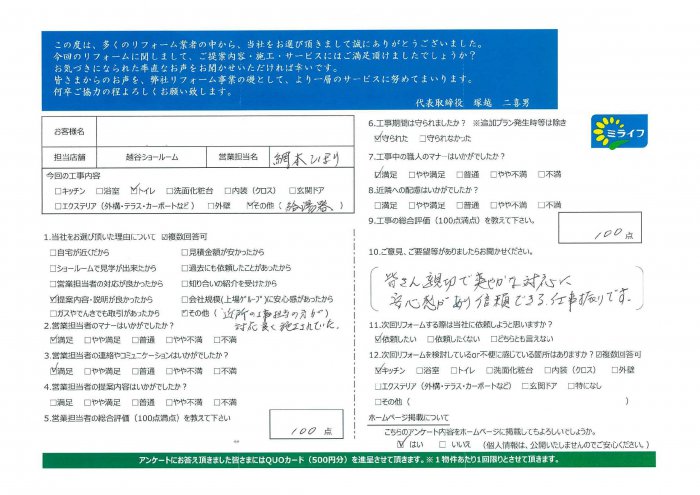 この度は、多くのリフォーム業者の中から、当社をお選び頂きまして誠にありがとうございました。
今回のリフォームに関しまして、ご提案内容・施工・サービスにはご満足頂けましたでしょうか？
お気づきになられた率直なお声をお聞かせいただければ幸いです。
皆さまからのお声を、弊社リフォーム事業の礎として、より一層のサービスに努めてまいります。
何卒ご協力の程よろしくお願い致します。
代表取締役 塚越 二喜男
お客様名
担当店舗 越谷ショールーム 営業担当名 網本ひばり
今回の工事内容
□キッチン □浴室 ☑トイレ □洗面化粧台 □内装（クロス） □玄関ドア
□エクステリア（外構・テラス・カーポートなど） □外壁 ☑その他（ 給湯器 ）
1.当社をお選び頂いた理由について ☑複数回答可
□自宅が近くだから □見積金額が安かったから
□ショールームで見学が出来たから □過去にも依頼したことがあったから
□営業担当者の対応が良かったから □知り合いの紹介を受けたから
☑提案内容・説明が良かったから □会社規模（上場グループ）に安心感があったから
□ガスやでんきでも取引があったから ☑その他（ 近所の工事担当の方が
対応良く施工されていた。
2.営業担当者のマナーはいかがでしたか？
☑満足 □やや満足 □普通 □やや不満 □不満
3.営業担当者の連絡やコミュニケーションはいかがでしたか？
☑満足 □やや満足 □普通 □やや不満 □不満
4.営業担当者の提案内容はいかがでしたか？
☑満足 □やや満足 □普通 □やや不満 □不満
5.営業担当者の総合評価（100点満点）を教えて下さい
100 点
6.工事期間は守られましたか？ ※追加プラン発生時等は除き
☑守られた □守られなかった
ミライフ
7.工事中の職人のマナーはいかがでしたか？
☑満足 □やや満足 □普通 □やや不満 □不満
8.近隣への配慮はいかがでしたか？
☑満足 □やや満足 □普通 □やや不満 □不満
9.工事の総合評価（100点満点）を教えて下さい。
100 点
10.ご意見、ご要望等がありましたらお聞かせください。
皆さん親切で爽やかな対応に
安心感があり信頼できる仕事振りです。
11.次回リフォームする際は当社に依頼しようと思いますか？
☑依頼したい □依頼したくない □どちらとも言えない
12.次回リフォームを検討しているor不便に感じている箇所はありますか？☑複数回答可
☑キッチン □浴室 □トイレ □洗面化粧台 □内装（クロス） □外壁
□エクステリア（外構・テラス・カーポートなど） □玄関ドア □特になし
□その他（ ）
ホームページ掲載について
こちらのアンケート内容をホームページに掲載してもよろしいでしょうか。
☑はい □いいえ （個人情報は、公開いたしませんのでご安心ください。）
アンケートにお答え頂きました皆さまにはQUOカード（500円分）を進呈させて頂きます。※１物件あたり1回限りとさせて頂きます。